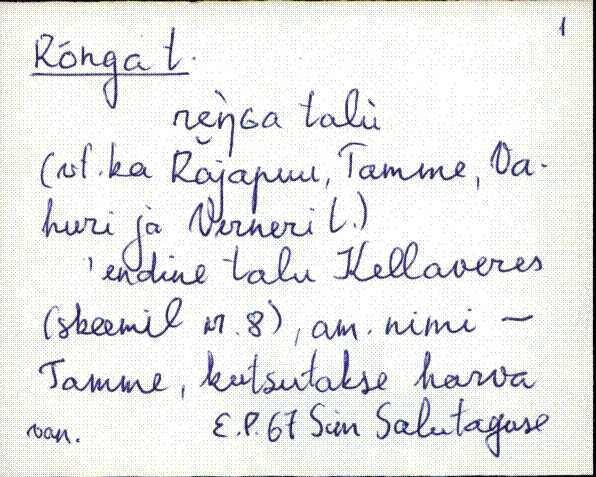 1
Rõnga t.
talù
(vt. ka Räjapuu, Tamme, Va-
huri ja Verneri t.)
'endine talu Kellaveres
(skeemil nr. 8), am. nimi —
Tamme, kutsutakse harva
van. E.P. 67 Sim Salutaguse